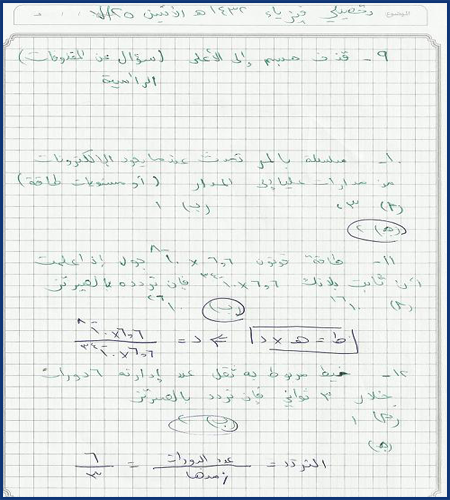 تحصيلي فيزياء ١٤٣٢هـ الاثنين ٧/٢٥
٩- قذف جسم إلى الأعلى (سؤال عن المقذوفات)
الرأسية
١٠- سلسلة بالمر تحدث عندما يعود الإلكترونات
من مدارات عليا إلى المدار (أو مستويات طاقة)
(P) ٣ (ب) ١
(هـ) ٢
١١- طاقة فوتون ٦,٦ × ١٠^-٨ جول إذا علمت
أن ثابت بلانك ٦,٦ × ١٠^-٣٤ فإن تردده بالهيرتز
(P) ١٠^١٦ (ب) ١٠^٢٦
ط = هـ × د ⇐ د = ٦,٦ × ١٠^-٨ / ٦,٦ × ١٠^-٣٤
١٢- خيط مربوط به ثقل عند إدارته ٦ دورات
خلال ٣ ثواني فإن تردد بالهيرتز
(P) ١ (ب) ٢
(هـ)
التردد = عدد الدورات / زمنها = ٦ / ٣